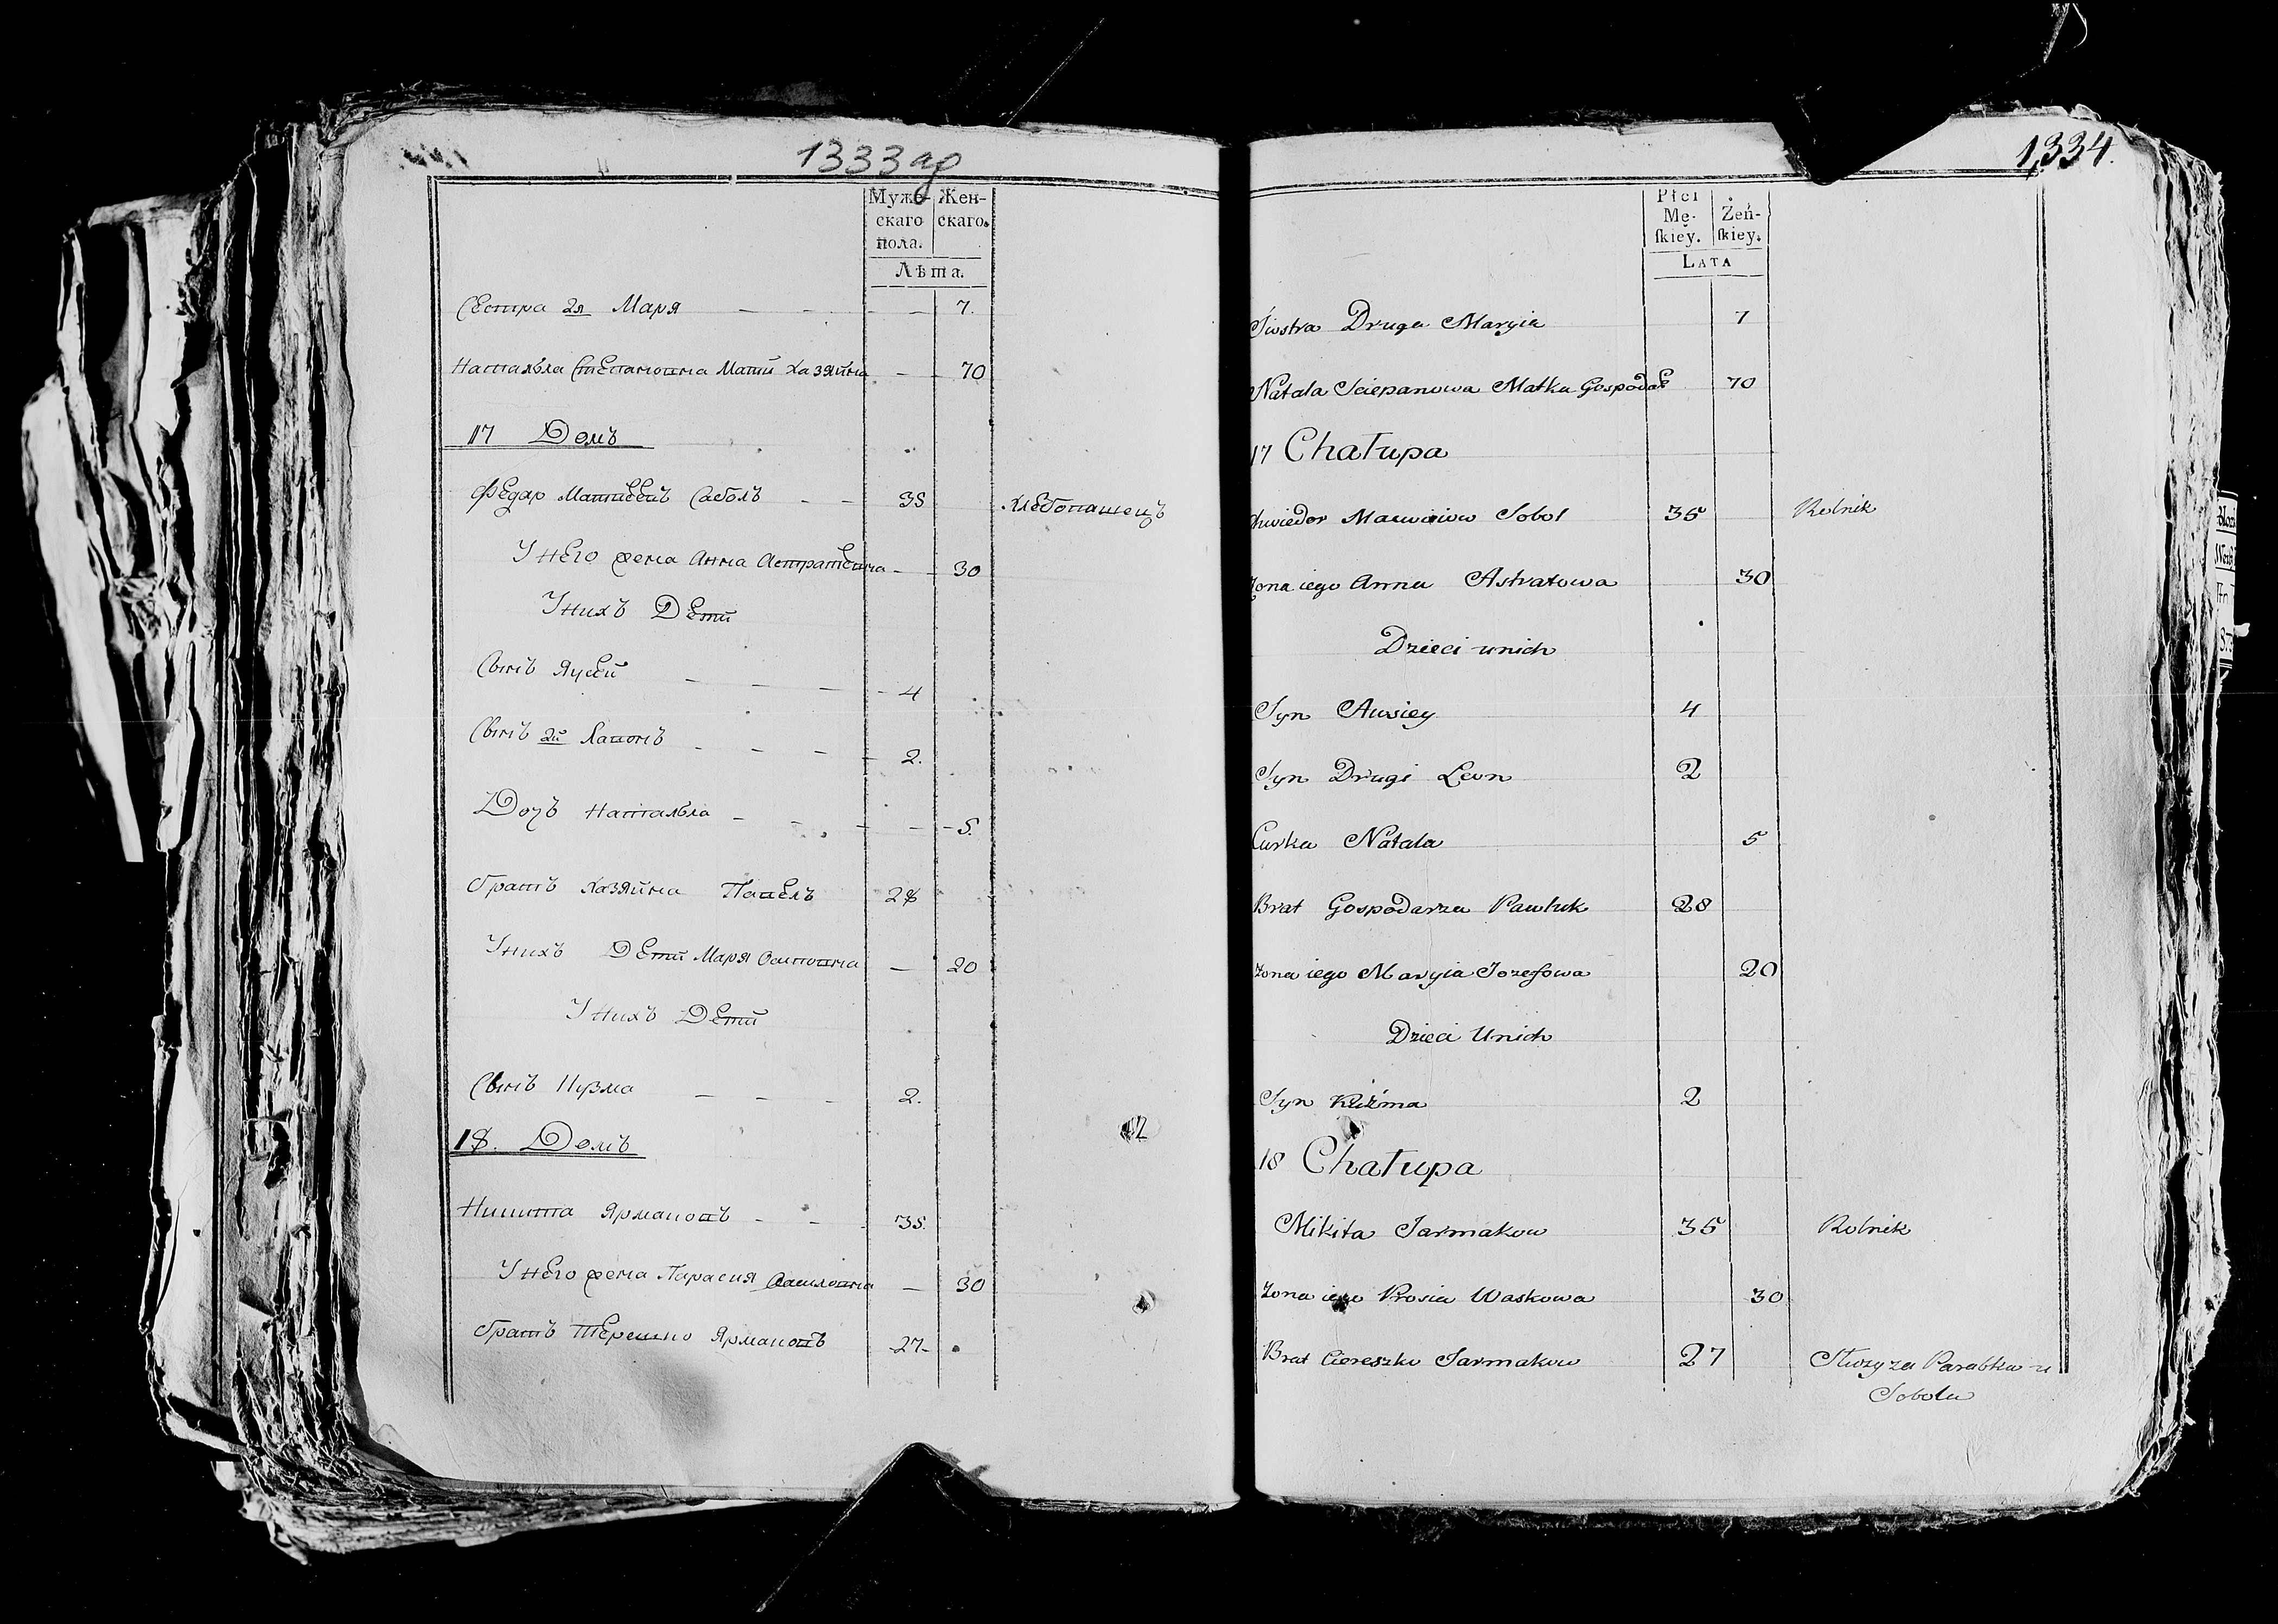 1333 ар
Мужескаго пола. Женскаго.
Лѣта.
Сестра 2я Маря — 7.
Наталья Степановна Мати Хазяйна — 70
17 Домъ
Федар Матвеевъ Саболъ — 35 Хлебопашецъ
У него жена Анна Астратевна — 30
У нихъ Дети
Сынъ Яусей — 4
Сынъ 2й — 2.
Дочъ Наталья — 5.
братъ Хазяйна Павелъ 28
У нихъ Дети Маря Осиповна — 20
У нихъ Дети
Сынъ Кузма — 2.
18. Домъ
Никита Ярмаковъ — 35.
У него жена Парасия Василовна — 30
братъ Терешко Ярмаковъ 27
1,334.
Płci Mę-skiey. Żeń-skiey.
LATA
Siostra Druga Maryia 7
Natala Sciepanowa Matka Gospodar 70
17 Chałupa
Chwiedor Sobol 35 Rolnik
Żona iego Anna Astratowa 30
Dzieci u nich
Syn Ausiey 4
Syn Drugi Leon 2
Curka Natala 5
Brat Gospodarza Pawluk 28
Żona iego Maryia Jozefowa 20
Dzieci U nich
Syn Kuźma 2
18 Chałupa
Mikita Jarmakow 35 Rolnik
Żona iego Prosia Waskowa 30
Brat Ciereszko Jarmakow 27 Służy za Parobka u
Sobola